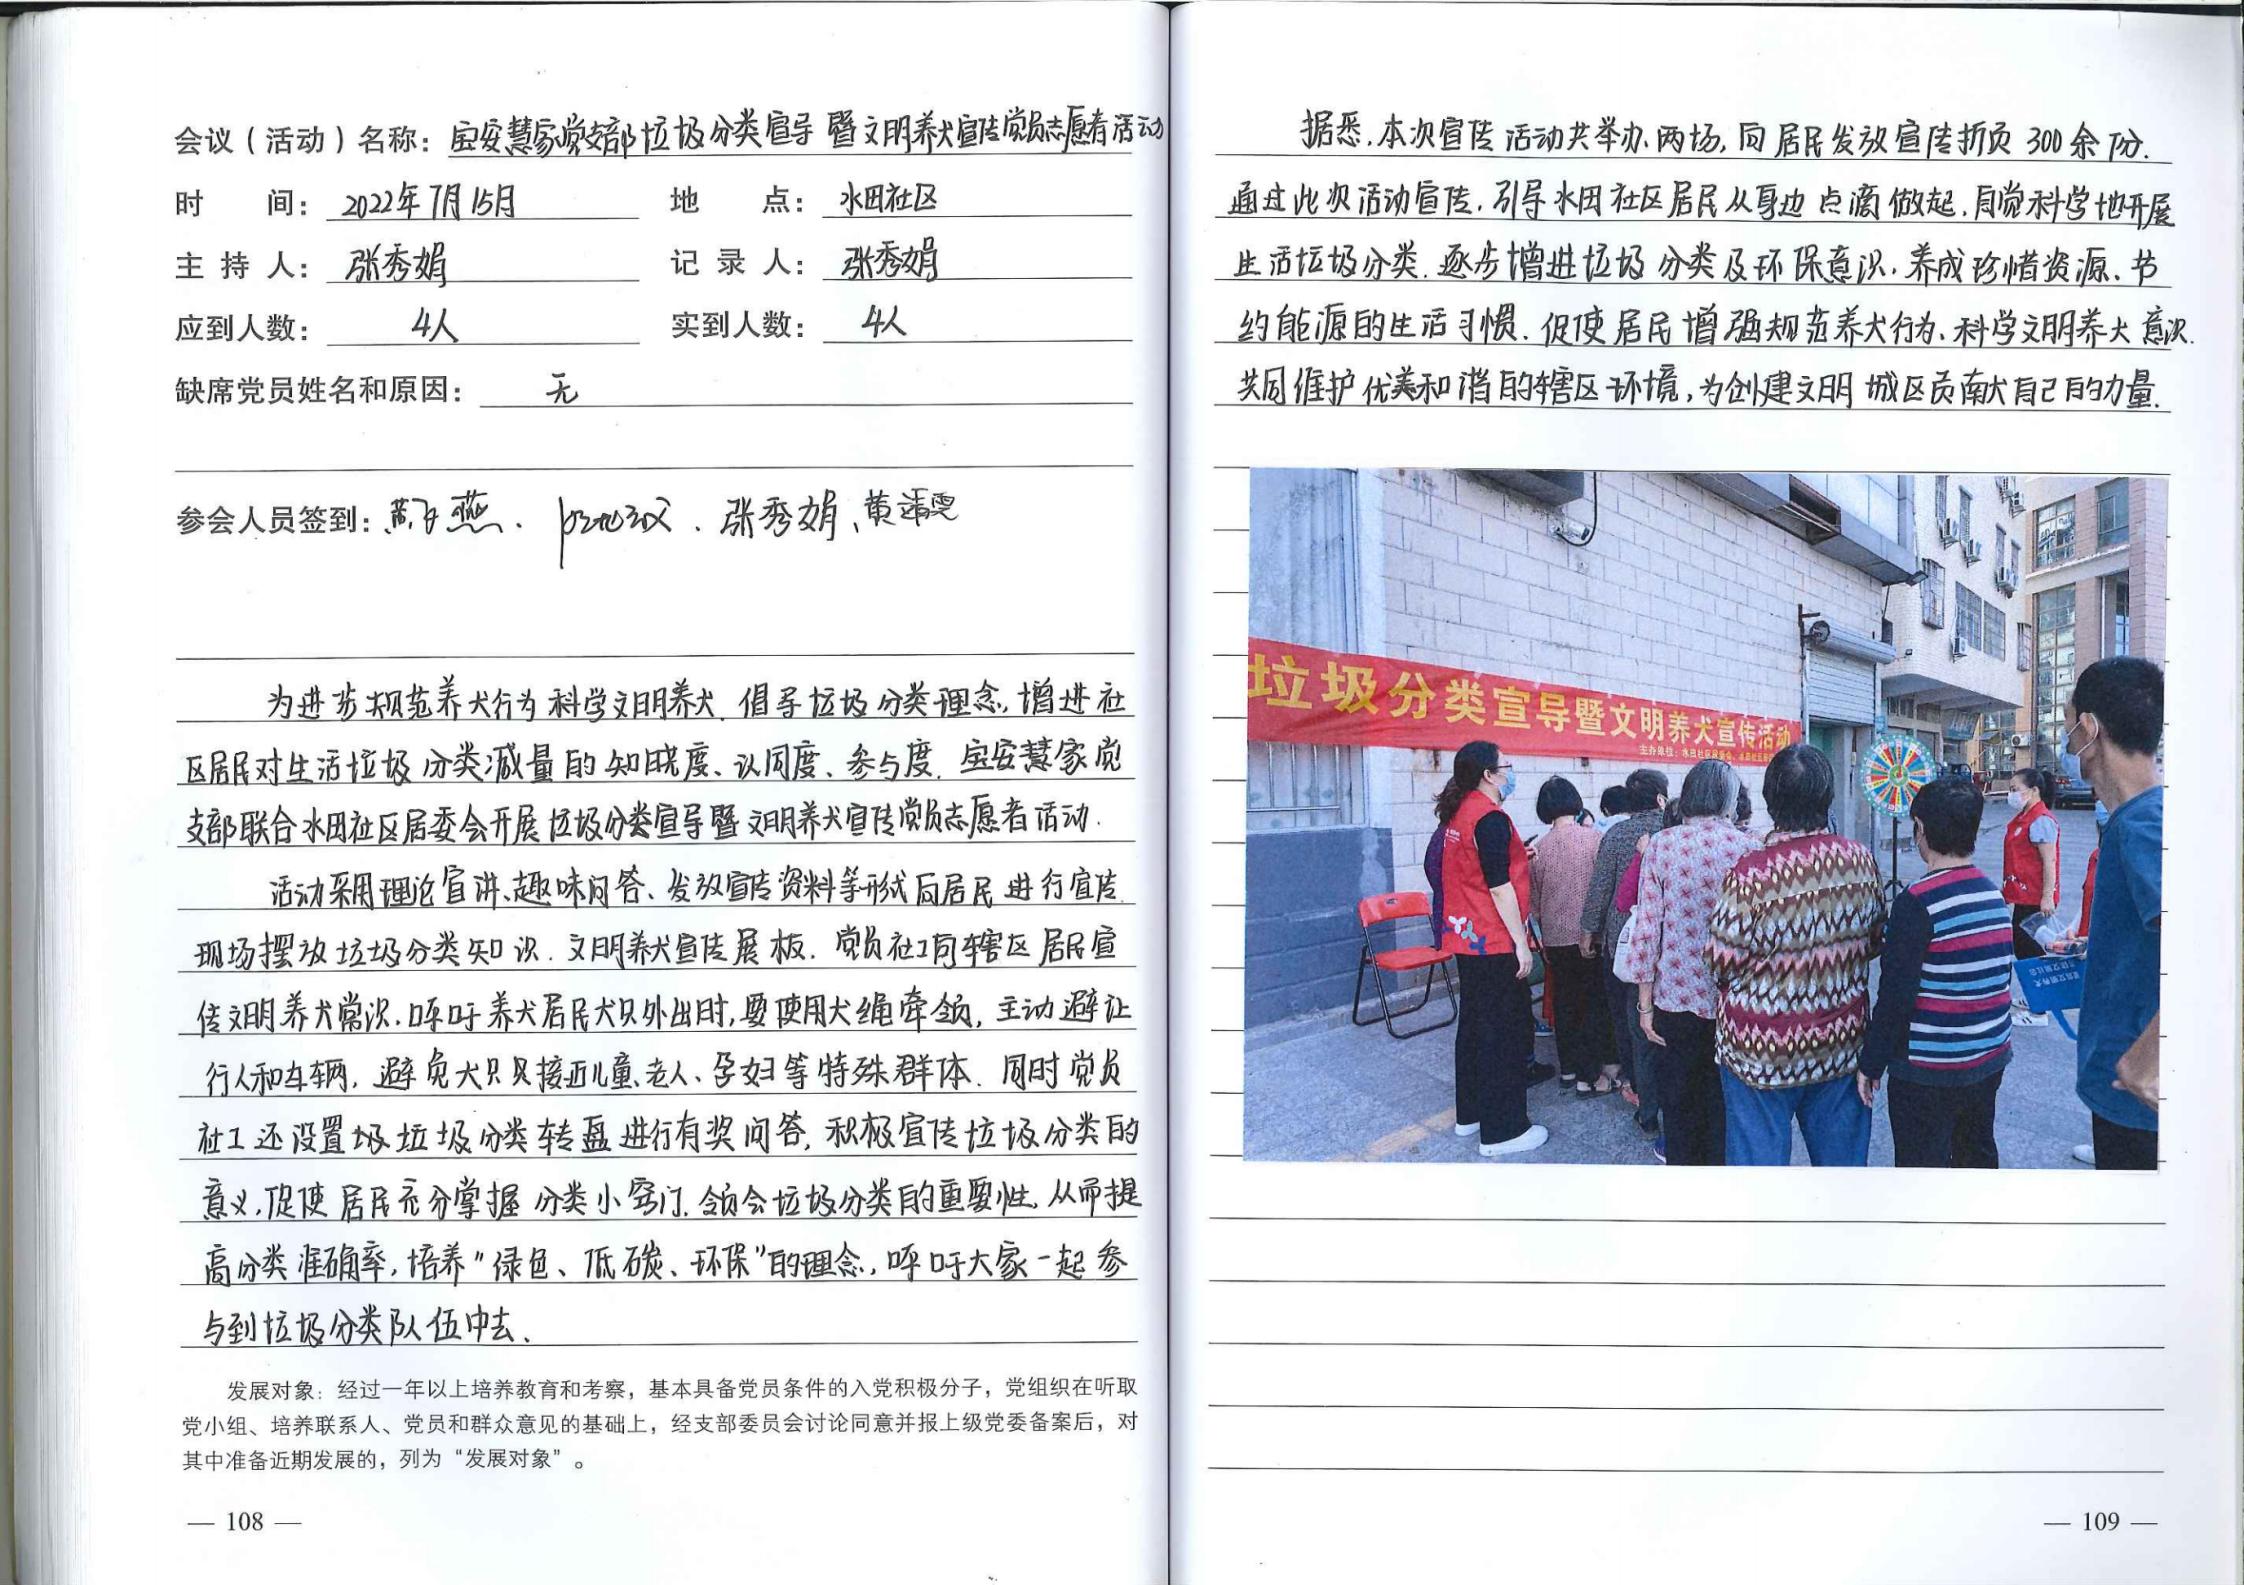 会议（活动）名称：宝安慧家党支部垃圾分类宣导暨文明养犬宣传党员志愿者活动
时　　间：2022年7月15日　地　　点：水田社区
主 持 人：张秀娟　记 录 人：张秀娟
应到人数：4人　实到人数：4人
缺席党员姓名和原因：无
参会人员签到：燕、张秀娟、黄
为进步规范养犬行为 科学文明养犬，倡导垃圾分类理念，增进社
区居民对生活垃圾分类减量的知晓度、认同度、参与度，宝安慧家党
支部联合水田社区居委会开展垃圾分类宣导暨文明养犬宣传党员志愿者活动.
活动采用理论宣讲、趣味问答、发放宣传资料等形式向居民进行宣传.
现场摆放垃圾分类知识、文明养犬宣传展板. 党员社工向辖区居民宣
传文明养犬常识. 呼吁养犬居民犬只外出时,要使用犬绳牵领, 主动避让
行人和车辆, 避免犬只只接近儿童、老人、孕妇等特殊群体. 同时党员
社工还设置圾垃圾分类转盘进行有奖问答, 积极宣传垃圾分类的
意义,促使居民充分掌握分类小窍门. 领会垃圾分类的重要性, 从而提
高分类准确率, 培养“绿色、低碳、环保”的理念, 呼吁大家一起参
与到垃圾分类队伍中去.
发展对象：经过一年以上培养教育和考察，基本具备党员条件的入党积极分子，党组织在听取
党小组、培养联系人、党员和群众意见的基础上，经支部委员会讨论同意并报上级党委备案后，对
其中准备近期发展的，列为“发展对象”。
— 108 —
据悉, 本次宣传活动共举办两场, 向居民发放宣传折页300余份.
通过此次活动宣传, 引导水田社区居民从身边点滴做起, 自觉科学地开展
生活垃圾分类. 逐步增进垃圾分类及环保意识, 养成珍惜资源、节
约能源的生活习惯. 促使居民增强规范养犬行为、科学文明养犬意识.
共同维护优美和谐的辖区环境, 为创建文明城区贡献自己的力量.
垃圾分类宣导暨文明养犬宣传活动
— 109 —